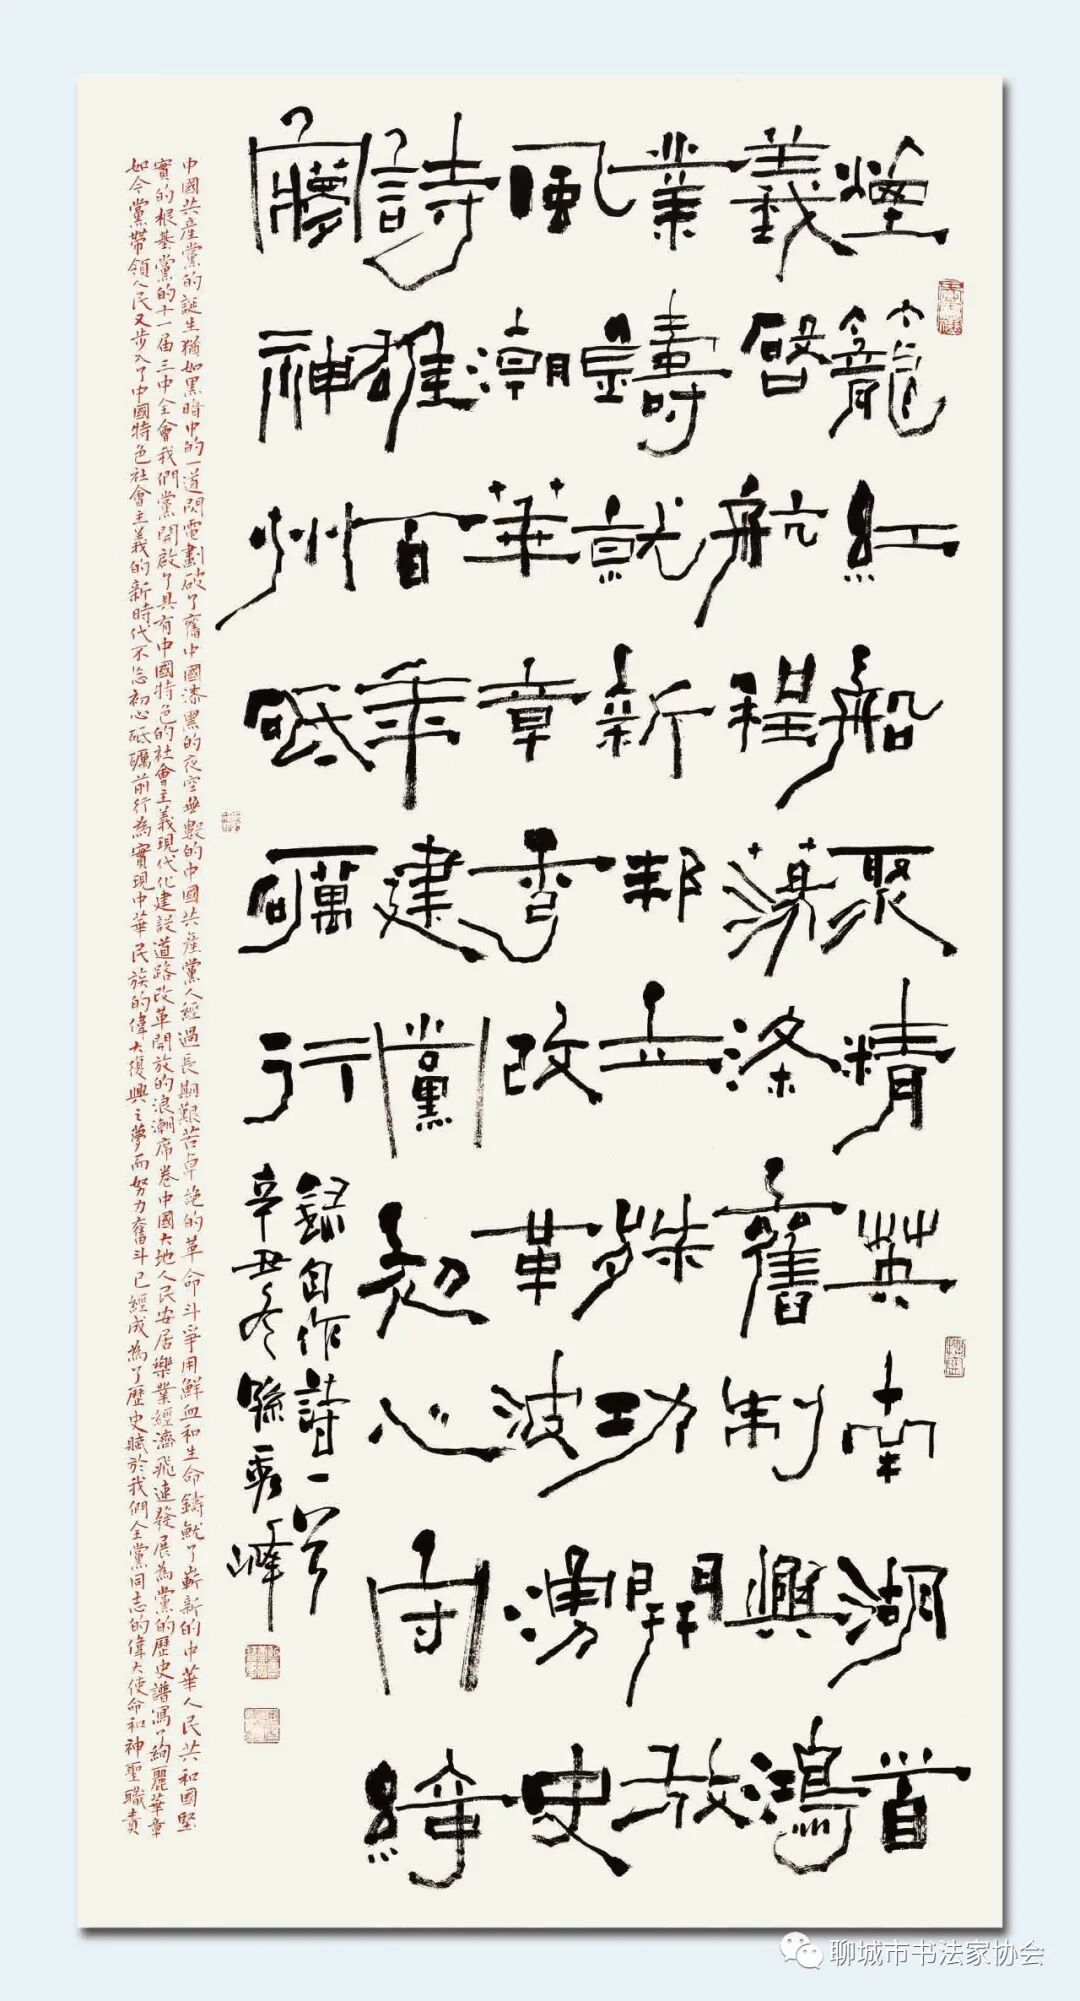 煙籠紅船聚精英南湖首
義啓航程蕩滌舊制興鴻
業鑄就新邦立殊功開放
風潮華章秀改革波湧史
詩雄百年建黨初心守
夢神州砥礪行
錄自作詩一首
辛丑冬孫秀峰
中國共産黨的誕生猶如黑暗中的一道閃電劃破了舊中國漆黑的夜空無數的中國共産黨人經過長期艱苦卓絶的革命斗爭用鮮血和生命鑄就了嶄新的中華人民共和國堅
實的根基黨的十一届三中全會我們黨開啟了具有中國特色的社會主義現代化建設道路改革開放的浪潮席卷中國大地人民安居樂業經濟飛速發展為黨的歷史譜寫了絢麗華章
如今黨帶領人民又步入了中國特色社會主義的新時代不忘初心砥礪前行為實現中華民族的偉大復興之夢而努力奮斗已經成為了歷史賦於我們全黨同志的偉大使命和神聖職責
聊城市书法家协会